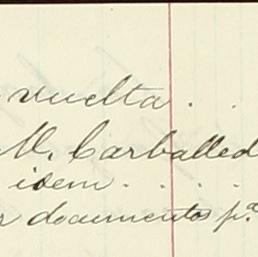 vuelta . .
M. Carballed
idem . . . .
r documentos p.ª